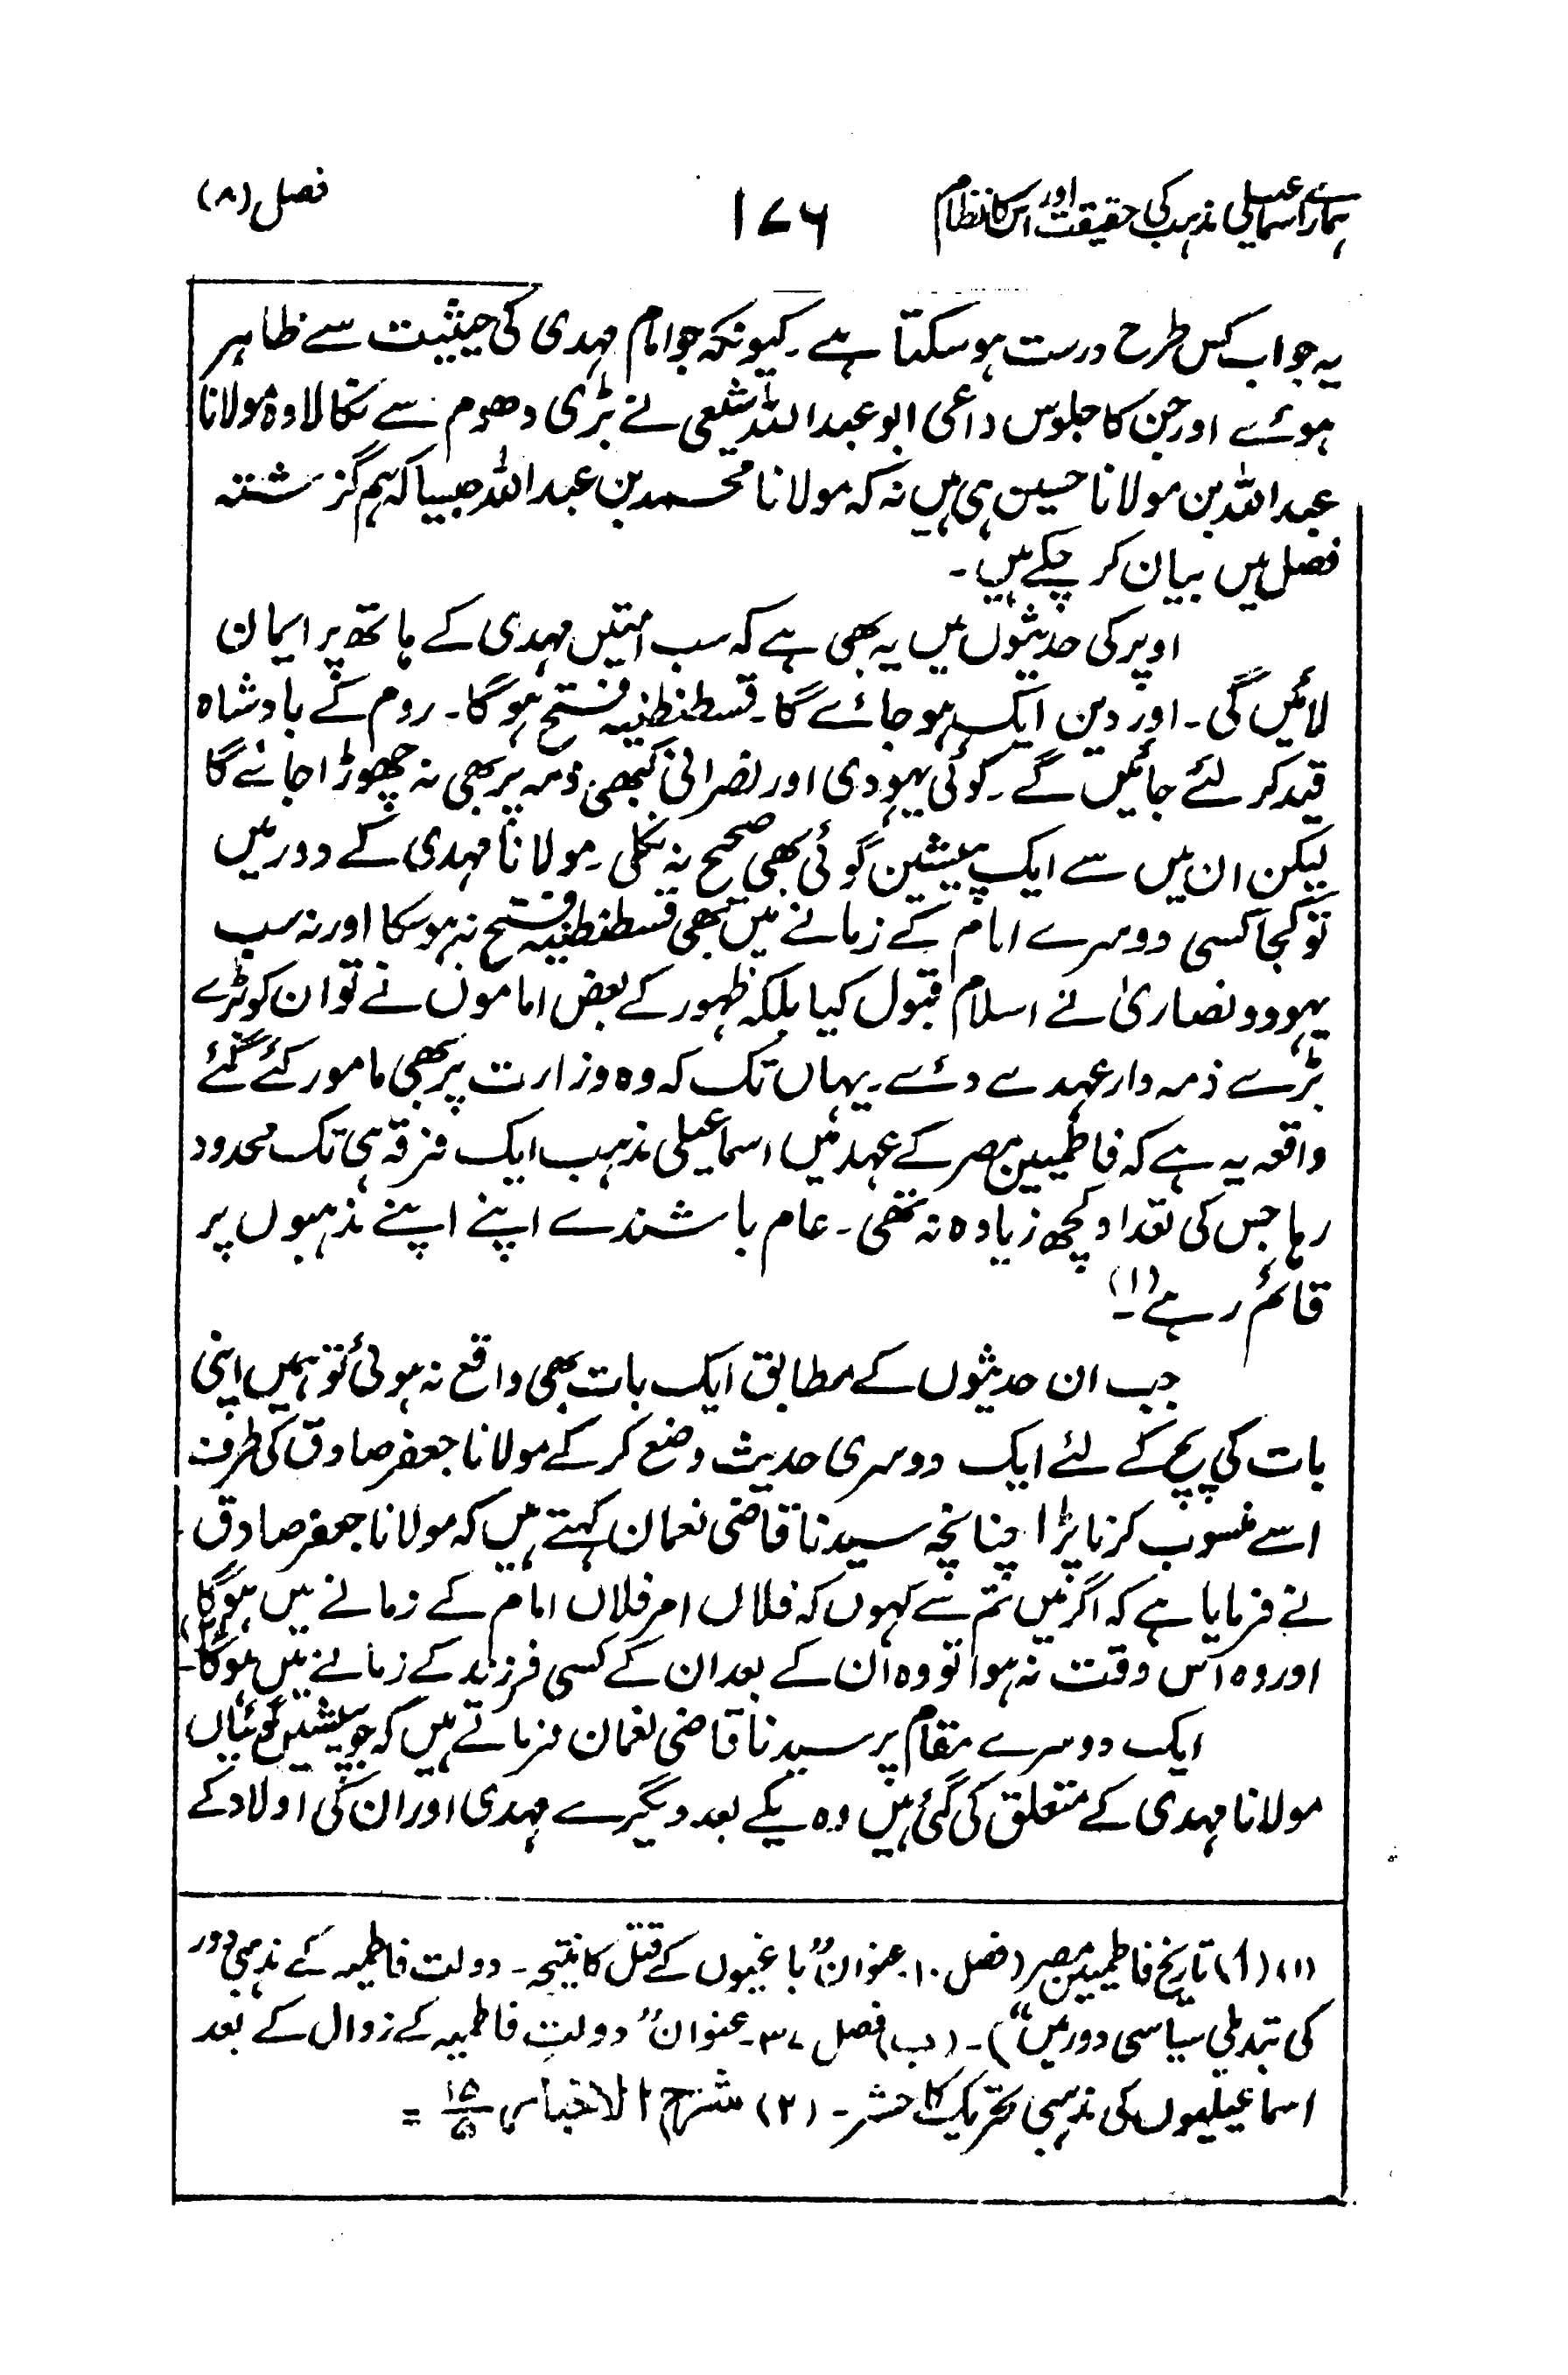 ہمارے اسماعیلی مذہب کی حقیقت اور اس کا نظام ۱۷۶ فصل (۸)
یہ جواب کس طرح درست ہو سکتا ہے ۔ کیونکہ جو امام مہدی کی حیثیت سے ظاہر
ہوئے اور جن کا جلوس داعی ابو عبداللہ شیعی نے بڑی دھوم سے نکالا وہ مولانا
عبداللہ بن مولانا حسین ہی ہیں نہ کہ مولانا محمد بن عبداللہ جیسا کہ ہم گزشتہ
فصل میں بیان کر چکے ہیں ۔
اوپر کی حدیثوں میں یہ بھی ہے کہ سب امتیں مہدی کے ہاتھ پر ایمان
لائیں گی ۔ اور دین ایک ہو جائے گا ۔ قسطنطنیہ فتح ہو گا ۔ روم کے بادشاہ
قید کر لئے جائیں گے ۔ کوئی یہودی اور نصرانی کبھی ذمہ پر بھی نہ چھوڑا جائے گا
لیکن ان میں سے ایک پیشین گوئی بھی صحیح نہ نکلی ۔ مولانا مہدی کے دور میں
تو کجا کسی دوسرے امام کے زمانے میں بھی قسطنطنیہ فتح نہ ہو سکا اور نہ سب
یہود و نصاریٰ نے اسلام قبول کیا بلکہ ظہور کے بعض اماموں نے تو ان کو بڑے
بڑے ذمہ دار عہدے دئے ۔ یہاں تک کہ وہ وزارت پر بھی مامور کئے گئے
واقعہ یہ ہے کہ فاطمیین مصر کے عہد میں اسماعیلی مذہب ایک فرقہ ہی تک محدود
رہا جس کی تعداد کچھ زیادہ نہ تھی ۔ عام باشندے اپنے اپنے مذہبوں پر
قائم رہے (۱) ۔
جب ان حدیثوں کے مطابق ایک بات بھی واقع نہ ہوئی تو ہمیں اپنی
بات کی پچ کے لئے ایک دوسری حدیث وضع کر کے مولانا جعفر صادق کی طرف
اسے منسوب کرنا پڑا چنانچہ سیدنا قاضی نعمان کہتے ہیں کہ مولانا جعفر صادق
نے فرمایا ہے کہ اگر میں تم سے کہوں کہ فلاں امر فلاں امام کے زمانے میں ہو گا
اور وہ اس وقت نہ ہوا تو وہ ان کے بعد ان کے کسی فرزند کے زمانے میں ہو گا (۲) ۔
ایک دوسرے مقام پر سیدنا قاضی نعمان فرماتے ہیں کہ جو پیشین گوئیاں
مولانا مہدی کے متعلق کی گئی ہیں وہ یکے بعد دیگرے مہدی اور ان کی اولاد کے
(۱) (أ) تاریخ فاطمیین مصر (فصل ۱۰ عنوان "باغیوں کے قتل کا نتیجہ ۔ دولت فاطمیہ کے مذہبی دور
کی تبدیلی سیاسی دور میں") ۔ (ب) فصل ۳۷ ۔ عنوان "دولتِ فاطمیہ کے زوال کے بعد
اسماعیلیوں کی مذہبی تحریک کا حشر ۔ (۲) شرح الاخبار ۱۵/۵ =